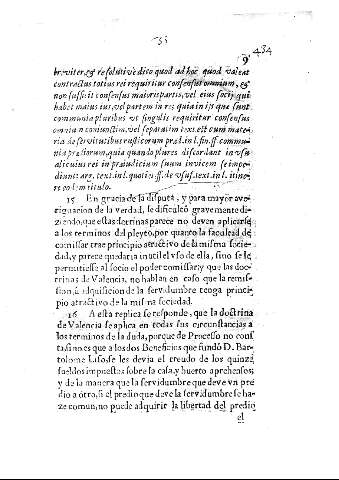 9 484
breviter, & resolutivè dito quod ad hoc quod valeat
contractus totius rei requiritur consensus omnium, &
non sufficit consensus maioris partis, vel eius socij qui
habet maius ius, vel partem in re, quia in ijs que sunt
communia pluribus ut singulis requiritur consensus
omnium coniunctim, vel separatim text. est cum mate-
ria de servitutibus rusticorum præd. in l. fin. ff. commu-
nia prædiorum, quia quando plures discordant in usu
alicuius rei in præiudicium suum invicem se impe-
diunt arg. text. in l.
15 En gracia de la disputa, y para mayor ave-
riguacion de la verdad, se dificultò gravemente di-
ziendo, que estas doctrinas parece no deven aplicarse
a los terminos del pleyto, por quanto la facultad de
comissar trae principio atractivo de la misma socie-
dad, y parece quedaria inutil el vso de ella, sino se le
permitiesse al socio el poder comissar, y que las doc-
trinas de Valencia, no hablan en caso que la remis-
sion, ò adquisicion de la servidumbre tenga princi-
pio atractivo de la misma sociedad.
16 A esta replica se responde, que la doctrina
de Valencia se aplica en todas sus circunstancias a
los terminos de la duda, porque de Processo no cons-
ta, sino es que a los dos Beneficios que fundò D. Bar-
tolome Liso, se les devia el treudo de los quinze
sueldos impuestos sobre la casa, y huerto aprehensos;
y de la manera que la servidumbre que deve vn pre-
dio a otro, si el predio que deve la servidumbre se ha-
ze comun, no puede adquirir la libertad del predio
el